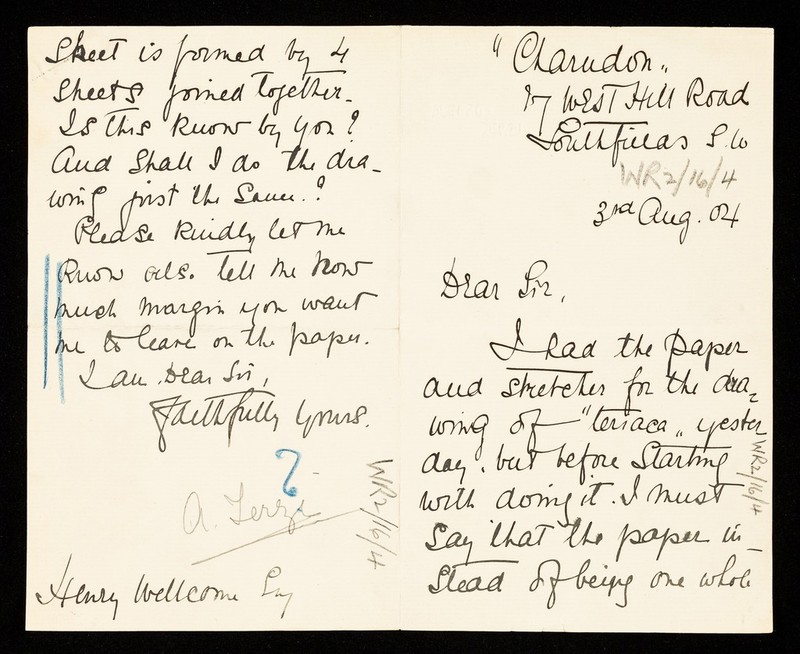 "Charndon"
17 West Hill Road
Southfields S.W
WR2/16/4
3rd Aug. 04
Dear Sir,
I had the paper
and stretcher for the dra=
wing of "teriaca" yester
day, but before starting
with doing it. I must
say that the paper in_
stead of being one whole
WR2/16/4
Sheet is formed by 4
sheets joined together_
Is this know by you?
And shall I do the dra_
wing just the same.?
Please kindly let me
know als. tell me how
much margin you want
me to leave on the paper.
I am Dear Sir,
faithfully yours.
?
A. Terzi
WR2/16/4
Henry Wellcome Esq